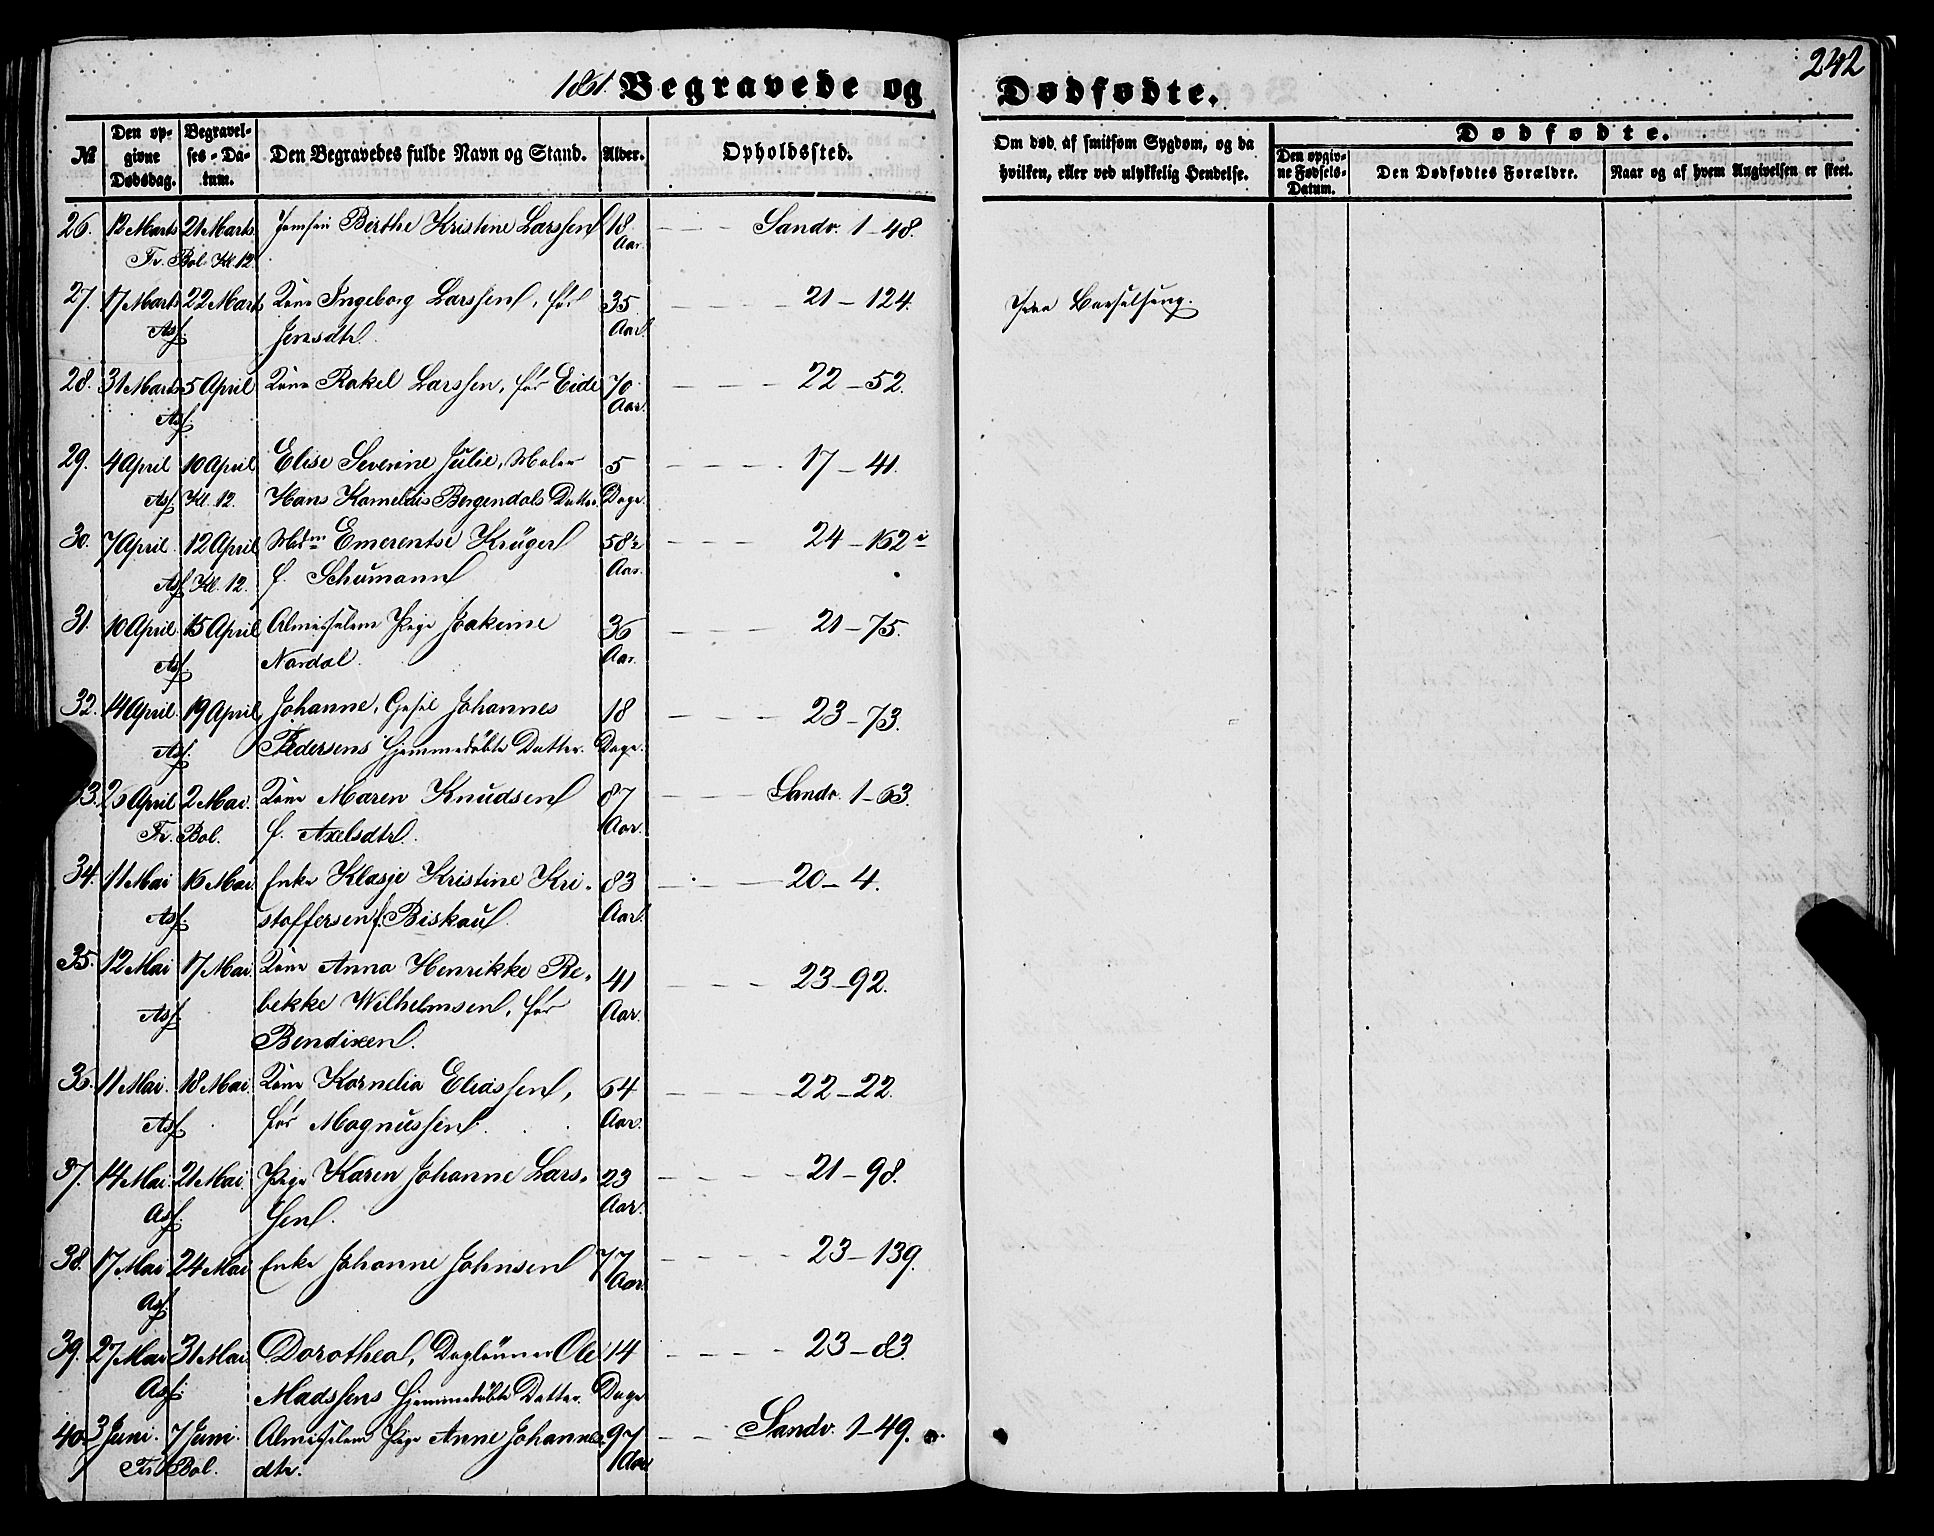 242
1861. Begravede og Dødfødte.
№ Den opgivne Dødsdag. Begravelses-Datum. Den Begravedes fulde Navn og Stand. Alder. Opholdssted. Om død af smitsom Sygdom, og da hvilken, eller ved ulykkelig Hendelse. Dødfødte.
Den opgivne Fødsels-Datum. Den Dødfødtes Forældre. Naar og af hvem Angivelsen er skeet.
26. 12 Marts 21 Marts. Jomfru Birthe Kristine Larssen 18 Sandv. 1-48.
Fr. Bol. Kl. 12. Aar.
27. 17 Marts 22 Marts Kone Ingeborg Larssen, før 35 21-124. Barselseng.
Asf. Jensdtr. Aar.
28. 31 Marts 5 April Kone Rakel Larssen, før Eide 70 22-52.
Asf. Aar.
29. 4 April 10 April Elise Severine Julie, Maler 5 17-41.
Asf. Kl. 12. Hans Kornelius Bergendals Datter. Dage.
30. 7 April 12 April Mdm Emerentse Krüger 58½ 24-162
Asf. Kl. 12. f. Schumann Aar.
31. 10 April 15 April Almisselem Pige Joakime 36 21-75.
Asf. Nordal. Aar.
32. 14 April 19 April Johanne, Gesel Johannes 18 23-73.
Asf. Pedersens hjemmedøbte Datter. Dage.
33. April 2 Mai. Kone Maren Knudsen 87 Sandv. 1-63.
Fr. Bol. f. Axelsdtr. Aar.
34. 11 Mai 16 Mai. Enke Klasje Kristine Kri- 83 20-4.
Asf. stoffersen f. Biskau. Aar.
35. 12 Mai 17 Mai. Kone Anna Henrikke Re- 41 23-92.
Asf. bekke Wilhelmsen, før Aar.
Bendixen.
36. 11 Mai. 18 Mai. Kone Kornelia Eliassen, 64 22-22.
Asf. før Magnussen. Aar.
37. 14 Mai. 21 Mai. Pige Karen Johanne Lars- 23 21-98.
Asf. sen. Aar.
38. 17 Mai 24 Mai Enke Johanne Johnsen 77 23-139.
Asf. Aar.
39. 27 Mai 31 Mai. Dorothea, Dagleiner Ole 14 23-83.
Asf. Madssens hjemmedøbte Datter. Dage
40. 3 Juni. 7 Juni. Almisselem Pige Anne Johannes- 97 Sandv. 1-49.
Fr. Bol. dtr. Aar